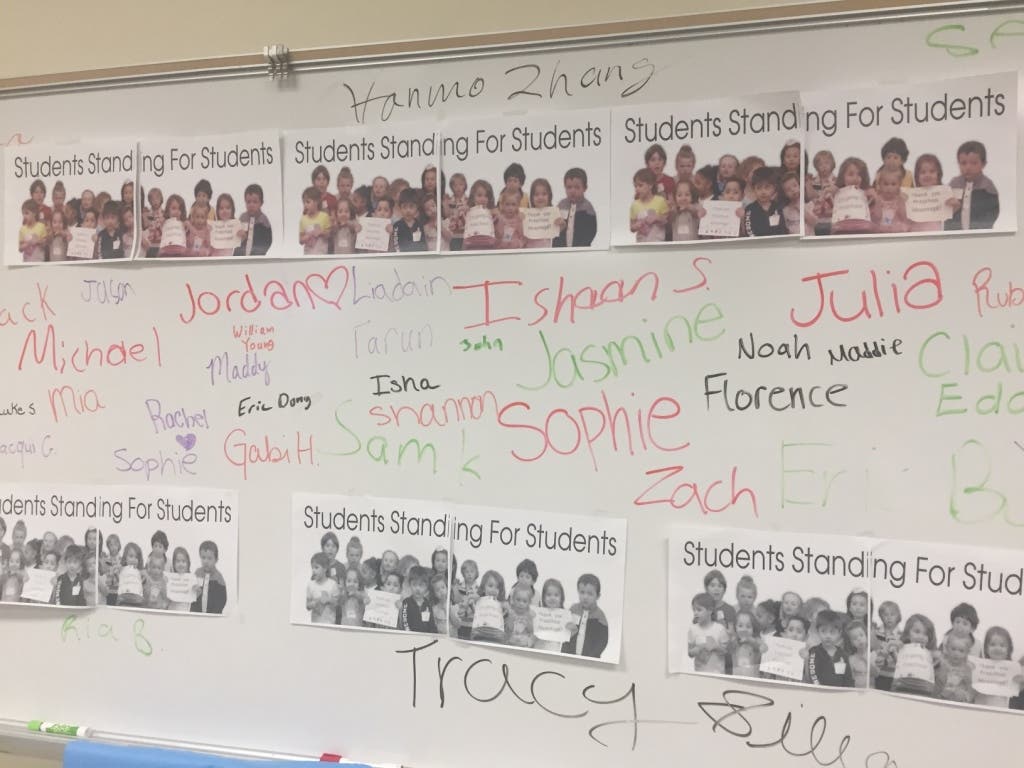 Hanmo Zhang
Students Standing For Students
Students Standing For Students
Students Standing For Students
Jason Jordan Liadain Ishaan S. Julia
Michael William Young Tarun John Jasmine Noah Maddie
Maddy
Mia Rachel Eric Dong Isha Shannon Sophie Florence
Sophie Gabi H. Sam K Zach Eric
Students Standing For Students
Students Standing For Students
Students Standing For Stud
Ria B.
Tracy